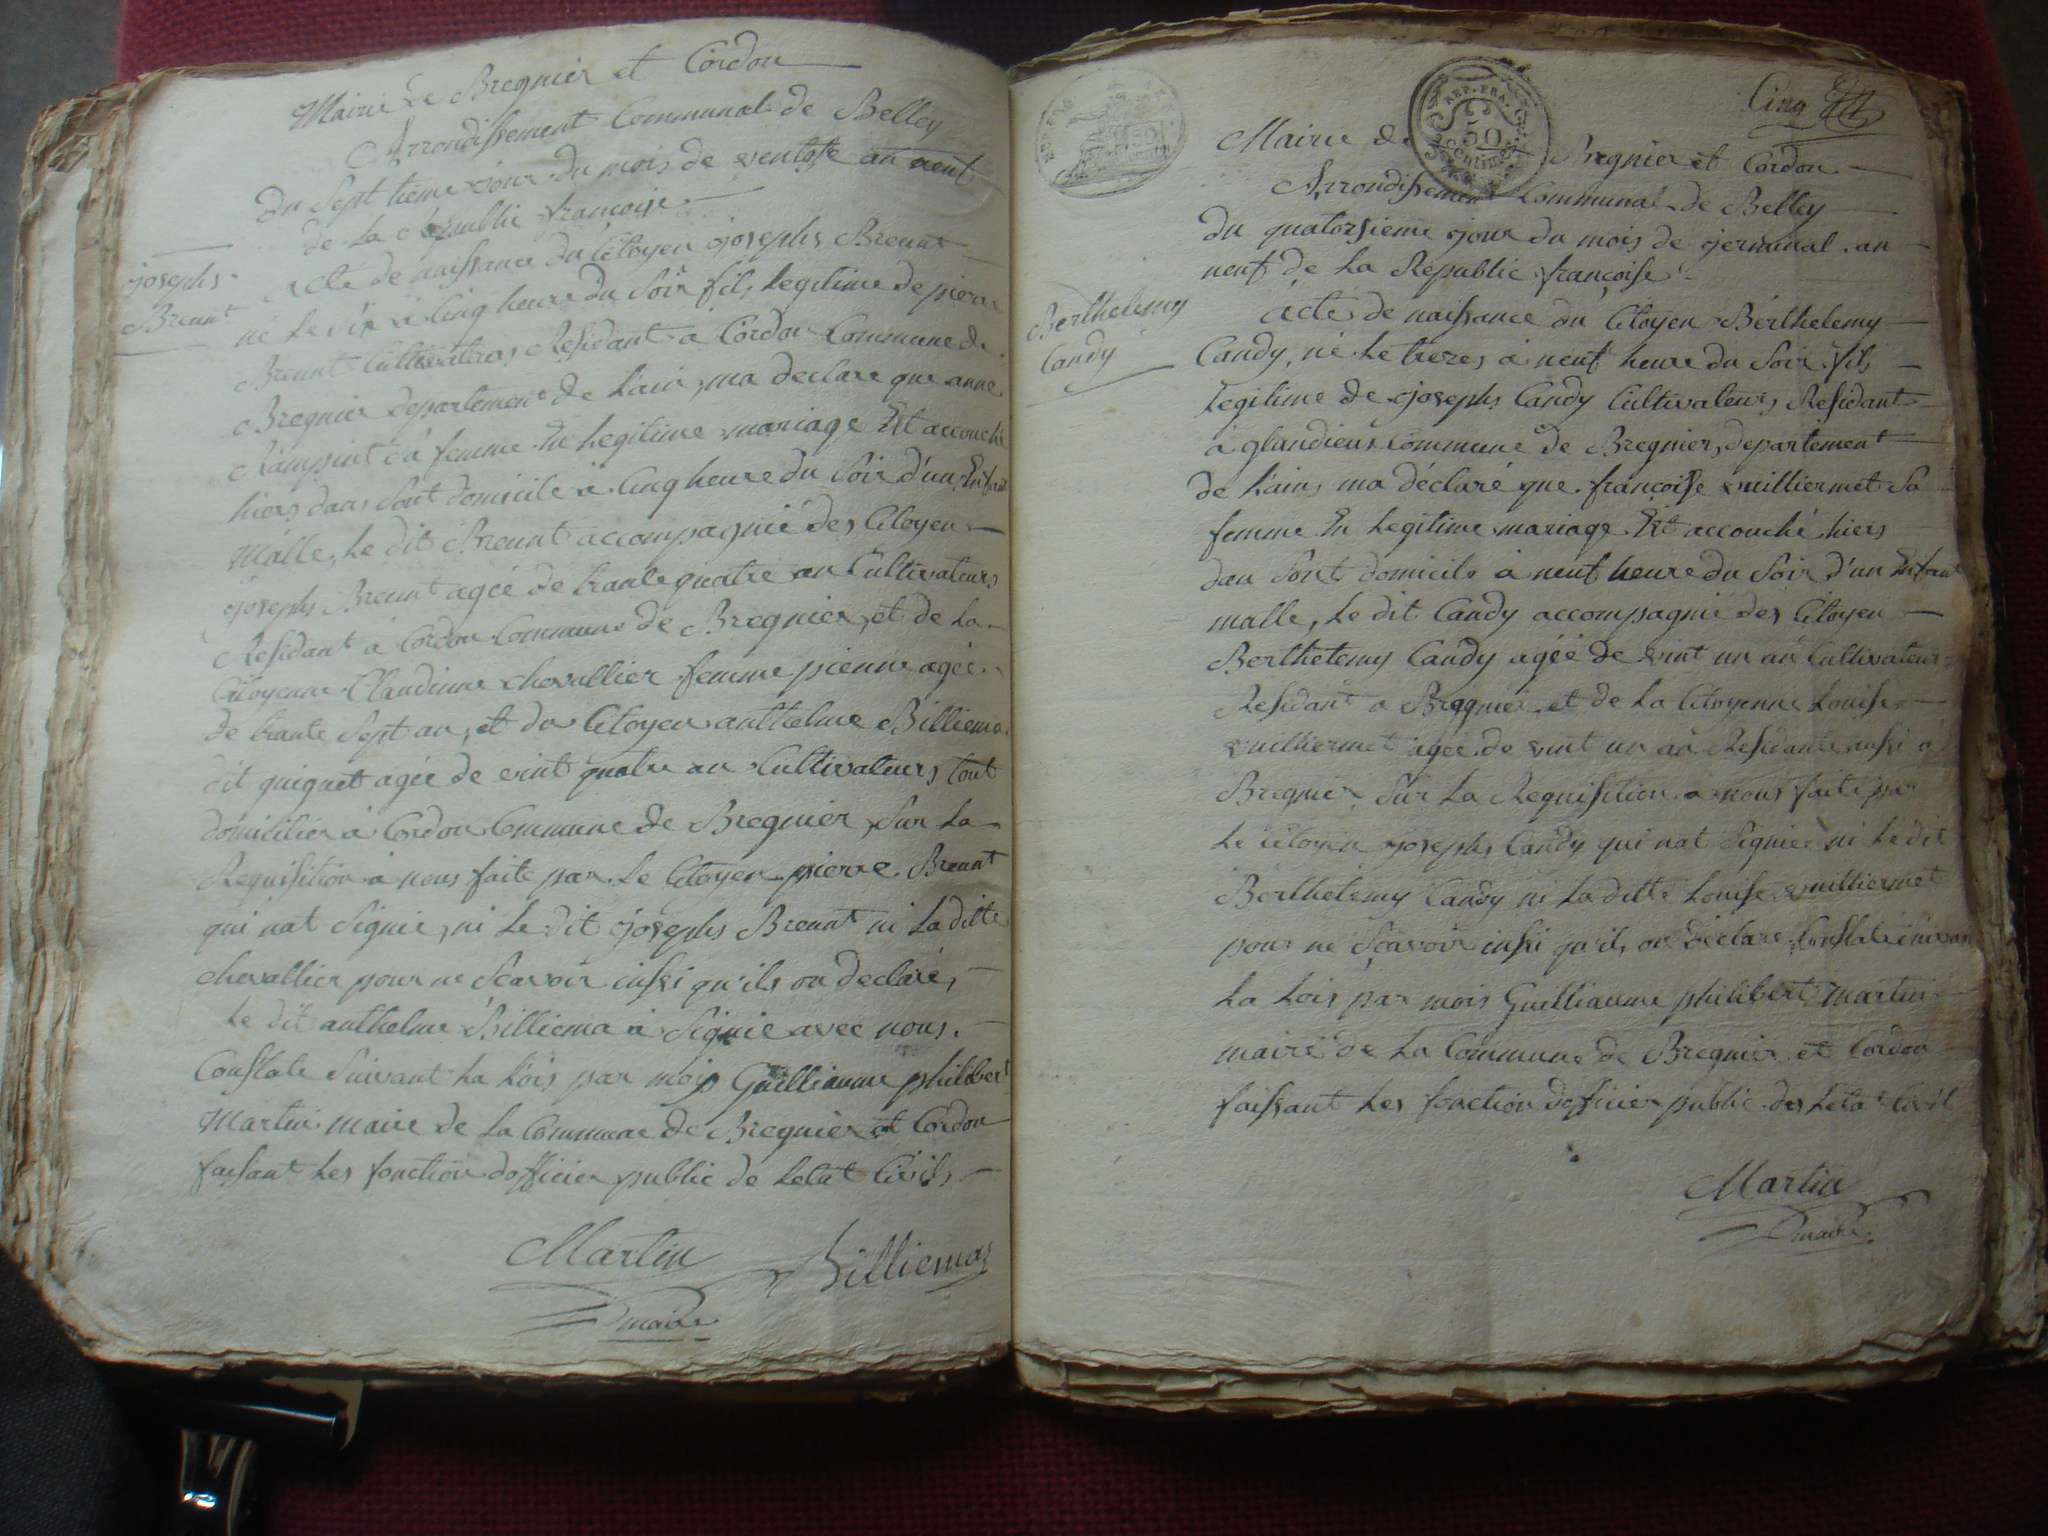 Mairie de Bregnier et Cordon
Arrondissement Communal de Belley
du Sept tieme jour du mois de ventosse an neuf
de La françoise
josephs
Breunt
Acte de naissance du Citoyen josephs Breunt
né Le Six a Cinq heure du Soir fils Legitime de pierre
Breunt Cultivateurs Residant à Cordon Commune de
Bregnier departement de Lain, ma declare que anne
Rampint Sa femme En Legitime mariage Est accouché
hiers dans Sont domicile à Cinq heure du Soir d'un Enfant
Malle, Le dit Breunt accompagnié des Citoyen
josephs Breunt agée de trante quatre an Cultivateurs
Residant à Cordon Commune de Bregnier, et de La
Citoyenne Claudinne chevallier femme pienne agée
de trante Sept an, et du Citoyen anthelme Billiema
dit guiguet agée de vint quatre an Cultivateurs tout
domicilier à Cordon Commune de Bregnier, Sur La
Requisition à nous faite par Le Citoyen pierre Breunt
qui nat Signie, ni Le dit josephs Breunt ni La ditte
chevallier pour ne Scavoir inssi qu'ils on declaré,
Le dit anthelme Billiema à Signie avec nous.
Constaté Suivant La Lois par moi Guilliaume philibert
Martin maire de La Commune de Bregnier et Cordon
faisant Les fonction dofficier public de Letat Civils
Martin Billiemaz
maire
REP. FRA.
50
centimes
Cinq
Mairie de Bregnier et Cordon
Arrondissement Communal de Belley
du quatorsieme jour du mois de jerminal an
neuf de La Republic françoise
Berthelemy
Candy
Acte de naissance du Citoyen Berthelemy
Candy, né Le trezes à neuf heure du Soir fils
Legitime de josephs Candy Cultivateurs Residant
à glandieus commune de Bregnier, departement
de Lains ma déclaré que françoise vuilliermet Sa
femme En Legitime mariage Est accouché hiers
dan Sont domicile à neuf heure du Soir d'un Enfant
malle, Le dit Candy accompagnié des Citoyen
Berthelemy Candy agée de vint un an Cultivateur
Residant a Bregnier et de La Citoyenne Louise
vuilliermet agée de vint un an Residante aussi à
Bregnier Sur La Requisition à nous faite par
Le Citoyen josephs Candy qui nat Signie ni Le dit
Berthelemy Candy ni La ditte Louise vuilliermet
pour ne Scavoir inssi qu'ils on déclare, Constaté suivan
La Lois par mois Guilliaume philibert Martin
maire de La Commune de Bregnier et Cordon
faissant Les fonction dofficier public des Letat Civil
Martin
maire